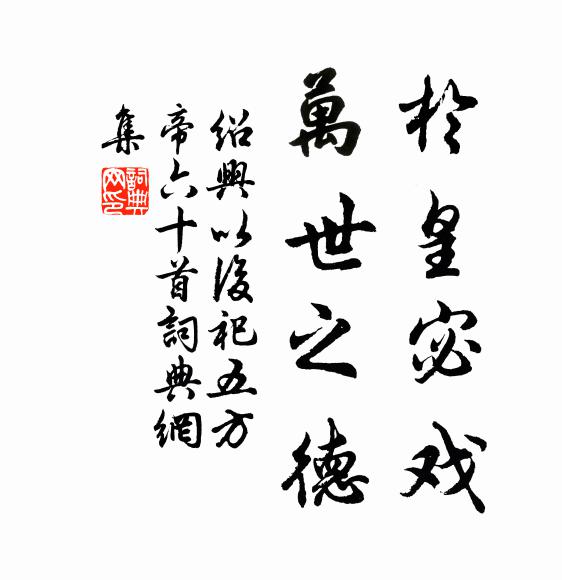 於皇宓戏
萬世之德
紹興以後祀五方
帝六十首詞典網
集
詞典網印